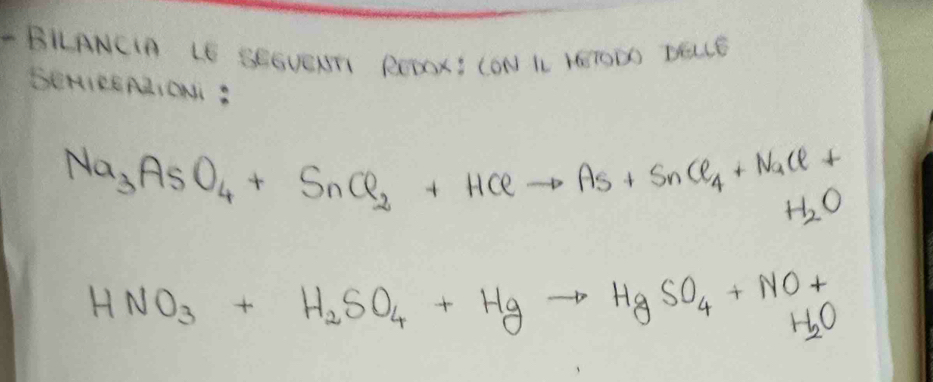 - BILANCIA LE SEGUENTI REDOX: CON IL METODO DELLE
SEMIREAZIONI:
Na₃AsO₄ + SnCl₂ + HCl → As + SnCl₄ + NaCl +
H₂O
HNO₃ + H₂SO₄ + Hg → HgSO₄ + NO +
H₂O